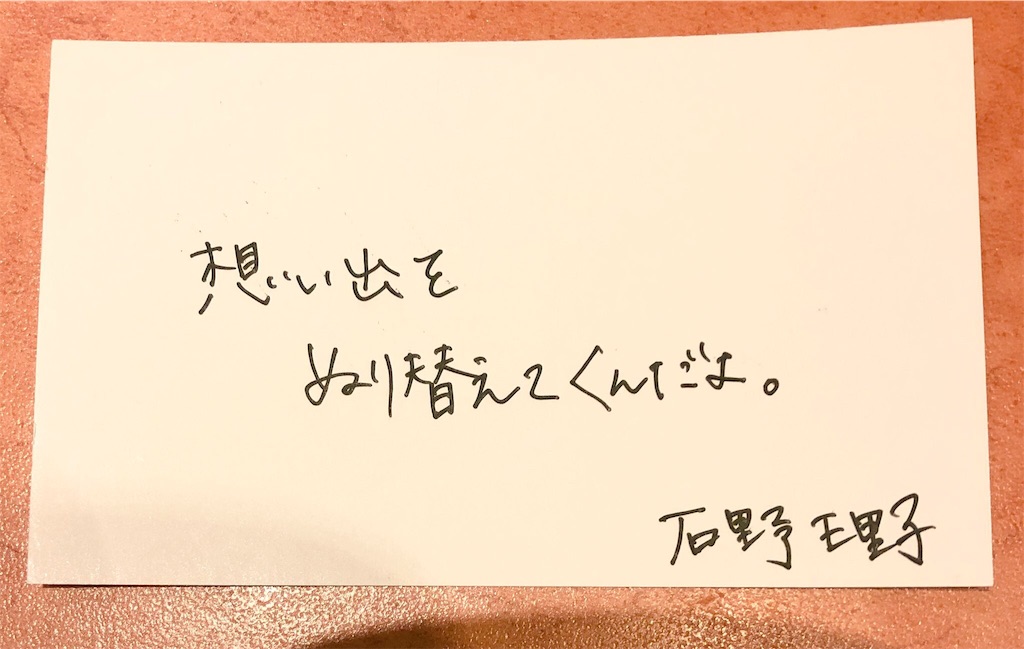 想い出を
ぬり替えてくんだよ。
石野理子